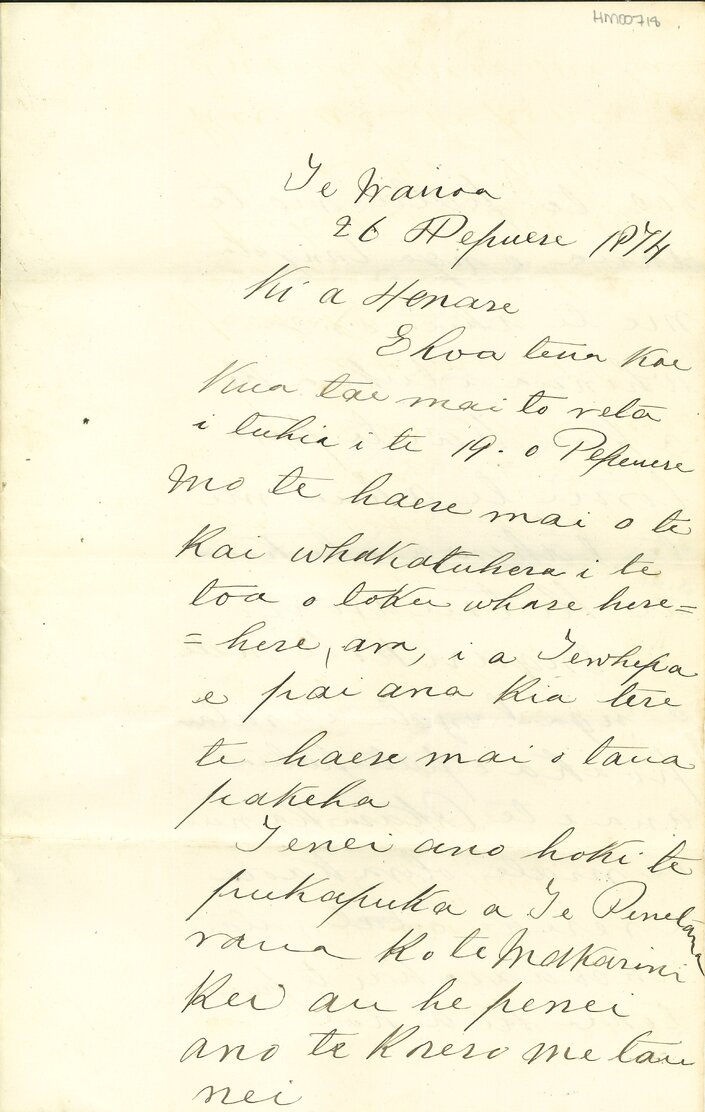 HM00718
Te Wairoa
26 Pepuere 1874
Ki a Henare
E hoa tena koe
Kua tae mai to reta
i tuhia i te 19. o Pepuere
mo te haere mai o te
kai whakatuhera i te
toa o toku whare here=
=here, ara, i a Tewhepa
e pai ana kia tere
te haere mai o taua
pakeha
Tenei ano hoki te
pukapuka a Te Penetana
raua ko te Makarini
kei au he penei
ano te korero me tau
nei